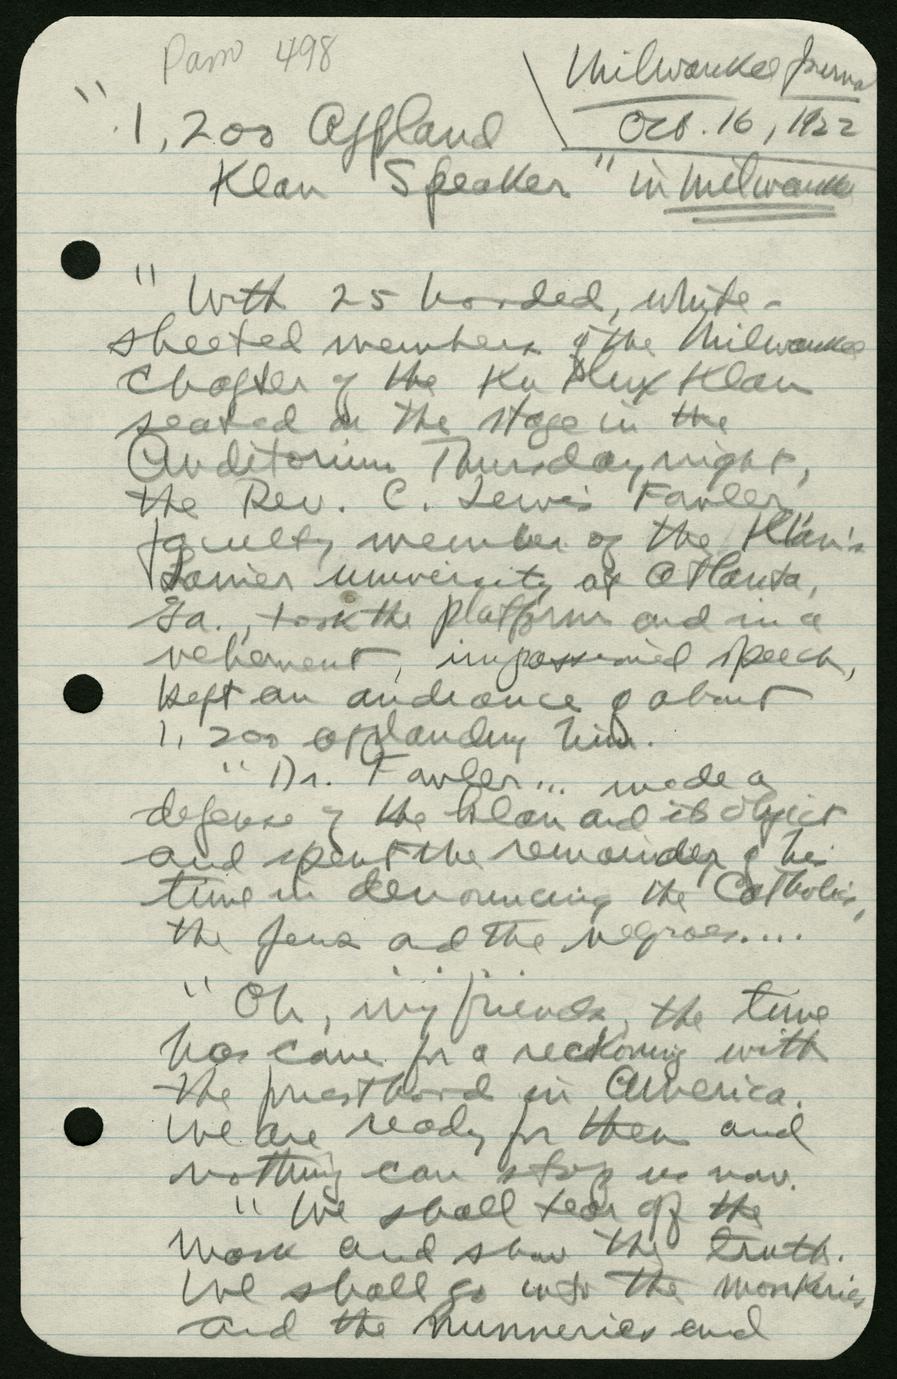 Pam 498
Milwaukee Journal
Oct. 16, 1922
"1,200 Applaud
Klan Speaker" in Milwaukee
"With 25 hooded, white-
sheeted members of the Milwaukee
Chapter of the Ku Klux Klan
seated on the stage in the
Auditorium Thursday night,
the Rev. C. Lewis Fowler,
faculty member of the Klan's
Lanier university at Atlanta,
Ga., took the platform and in a
vehement, impassioned speech,
kept an audience of about
1,200 applauding him.
"Dr. Fowler... made a
defense of the Klan and its object
and spent the remainder of his
time in denouncing the Catholics,
the Jews and the negroes....
"Oh, my friends, the time
has come for a reckoning with
the priesthood in America.
We are ready for them and
nothing can stop us now.
"We shall tear off the
mask and show the truth.
We shall go into the monkeries
and the nunneries and